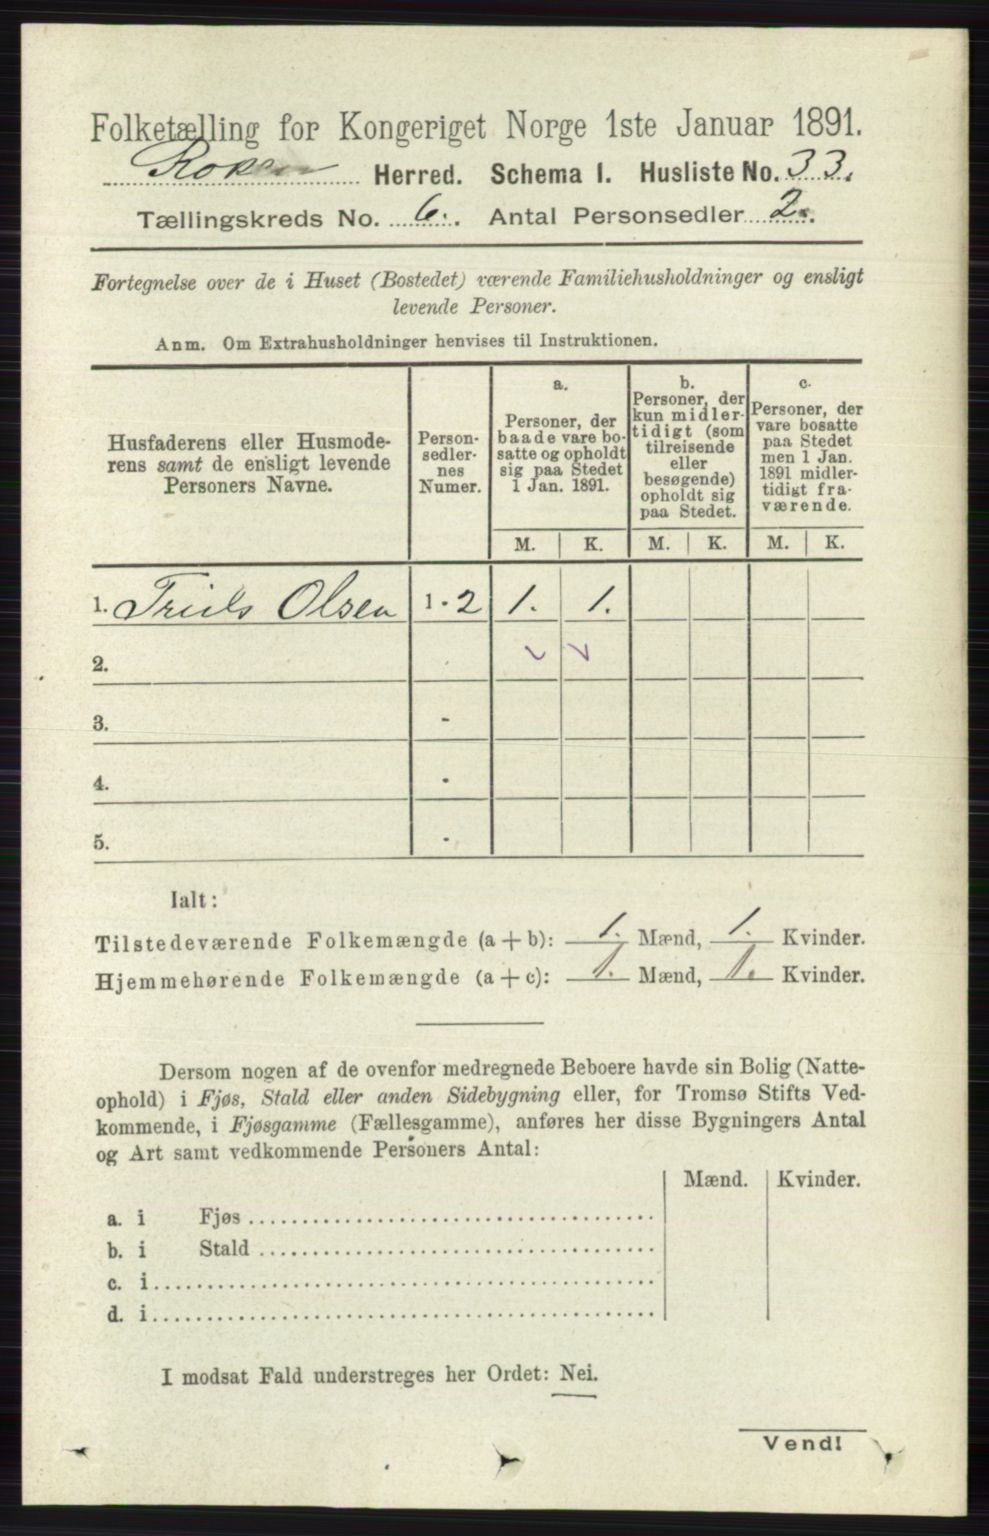 Folketælling for Kongeriget Norge 1ste Januar 1891.
Røken Herred. Schema I. Husliste No. 33.
Tællingskreds No. 6. Antal Personsedler 2.
Fortegnelse over de i Huset (Bostedet) værende Familiehusholdninger og ensligt
levende Personer.
Anm. Om Extrahusholdninger henvises til Instruktionen.
Husfaderens eller Husmode-
rens samt de ensligt levende
Personers Navne.
Person-
sedler-
nes
Numer.
a.
Personer, der
baade vare bo-
satte og opholdt
sig paa Stedet
1 Jan. 1891.
b.
Personer, der
kun midler-
tidigt (som
tilreisende
eller
besøgende)
opholdt sig
paa Stedet.
c.
Personer, der
vare bosatte
paa Stedet
men 1 Jan.
1891 midler-
tidigt fra-
værende.
M. K. M. K. M. K.
1. Truls Olsen 1-2 1. 1.
2.
3. -
4. -
5. -
Ialt:
Tilstedeværende Folkemængde (a + b): 1. Mænd, 1. Kvinder.
Hjemmehørende Folkemængde (a + c): 1. Mænd, 1. Kvinder.
Dersom nogen af de ovenfor medregnede Beboere havde sin Bolig (Natte-
ophold) i Fjøs, Stald eller anden Sidebygning eller, for Tromsø Stifts Ved-
kommende, i Fjøsgamme (Fællesgamme), anføres her disse Bygningers Antal
og Art samt vedkommende Personers Antal:
Mænd. Kvinder.
a. i Fjøs
b. i Stald
c. i
d. i
I modsat Fald understreges her Ordet: Nei.
Vend!